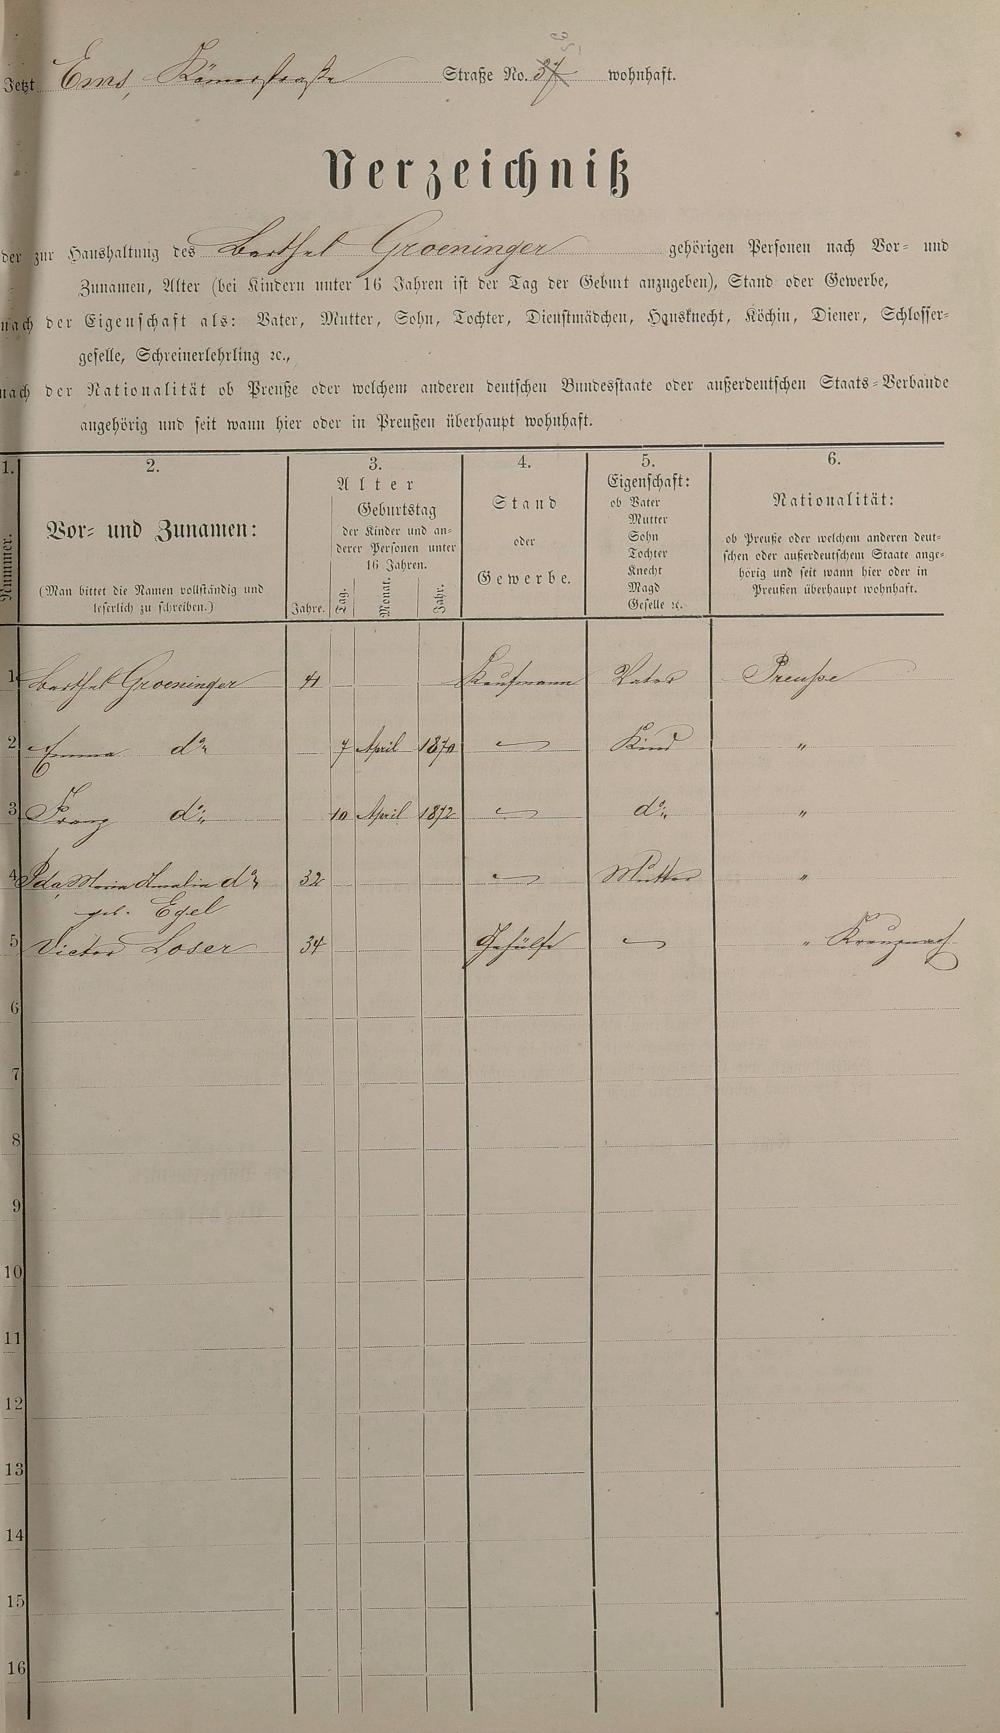 Jetzt Ems, Römerstraße Straße No. 37 wohnhaft.
Verzeichniß
der zur Haushaltung des Barthel Groeninger gehörigen Personen nach Vor- und
Zunamen, Alter (bei Kindern unter 16 Jahren ist der Tag der Geburt anzugeben), Stand oder Gewerbe,
nach der Eigenschaft als: Vater, Mutter, Sohn, Tochter, Dienstmädchen, Hausknecht, Köchin, Diener, Schlosser-
geselle, Schreinerlehrling ꝛc.,
nach der Nationalität ob Preuße oder welchem anderen deutschen Bundesstaate oder außerdeutschen Staats-Verbande
angehörig und seit wann hier oder in Preußen überhaupt wohnhaft.
1. 2. 3. 4. 5. 6.
Nummer.
Vor- und Zunamen:
(Man bittet die Namen vollständig und
leserlich zu schreiben.)
Alter
Jahre.
Geburtstag
der Kinder und an-
derer Personen unter
16 Jahren.
Tag. Monat. Jahr.
Stand
oder
Gewerbe.
Eigenschaft:
ob Vater
Mutter
Sohn
Tochter
Knecht
Magd
Geselle ꝛc.
Nationalität:
ob Preuße oder welchem anderen deut-
schen oder außerdeutschem Staate ange-
hörig und seit wann hier oder in
Preußen überhaupt wohnhaft.
1 Barthel Groeninger 41 Kaufmann Vater Preuße
2 Emma do 7 April 1870 Kind "
3 Franz do 10 April 1872 do "
4 Ida Maria Amalia do 32 Mutter "
geb. Egel
5 Victor Loser 34 Gehülfe " Kreuznach
6
7
8
9
10
11
12
13
14
15
16